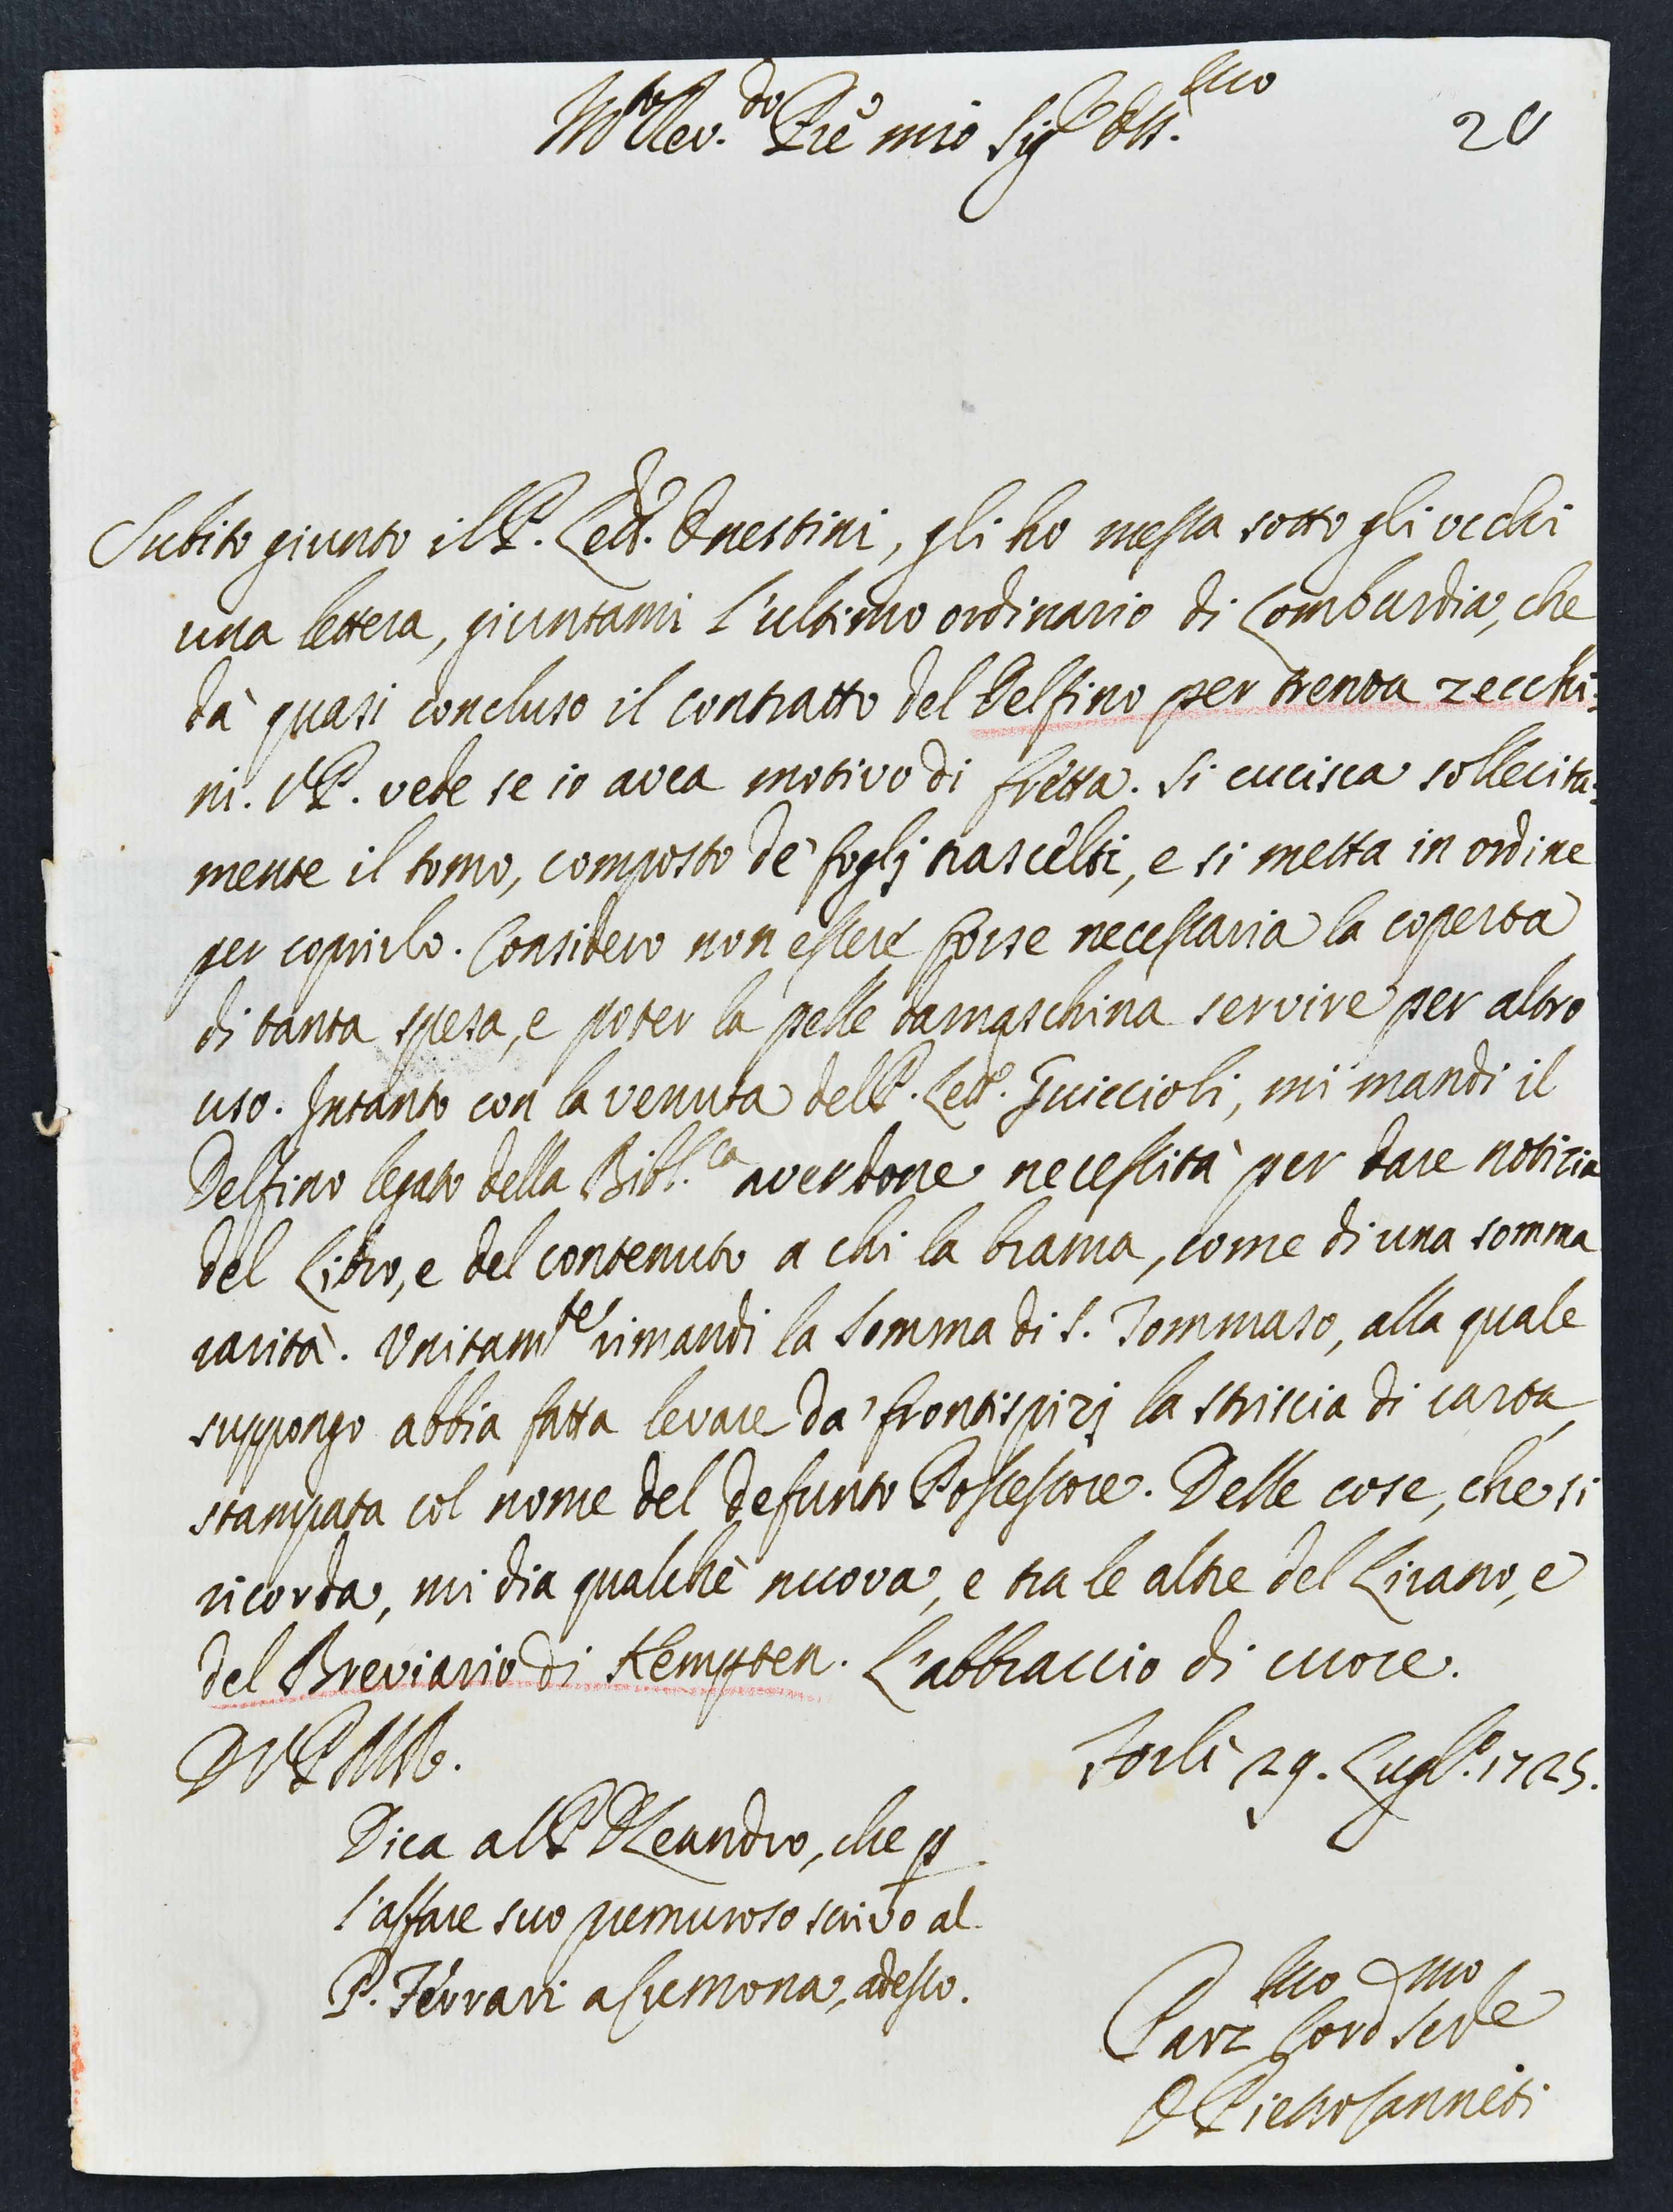 M.to Rev.do Pre mio Sig.e Oss.mo
20
Subito giunto il P. Lett.e Enestini, gli ho messa sotto gli occhi
una lettera, giuntami l'ultimo ordinario di Lombardia, che
dà quasi concluso il contratto del Delfino per trenta zecchi:
ni. VP. vede se io avea motivo di fretta. Si cucisca sollecita:
mente il tomo, composto de' foglj trascelti, e si metta in ordine
per coprirlo. Considero non essere forse necessaria la coperta
di tanta spesa, e poter la pelle damaschina servire per altro
uso. Intanto con la venuta del P. Lett.e Guiccioli, mi mandi il
Delfino legato della Bibl.ca avendone necessità per dare notizia
del Libro, e del contenuto a chi la brama, come di una somma
rarità. Unitam.te rimandi la Somma di S. Tommaso, alla quale
suppongo abbia fatta levare da' frontispizj la striscia di carta,
stampata col nome del defunto Possessore. Delle cose, che si
ricorda, mi dia qualche nuova, e tra le altre del Lirano, e
del Breviario di Kempten. L'abbraccio di cuore.
D VP MR.
Forlì 29. Lugl.o 1725.
Dica al P D Leandro, che p
l'affare suo premuroso scrivo al
P. Ferrari a Cremona, adesso.
Parz.mo Cord.mo Serv.e
D Pietro Canneti